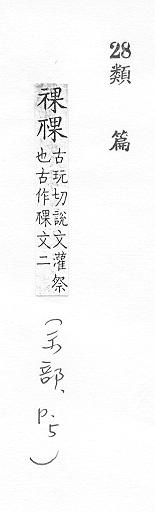 28類篇
祼䙛
古玩切說文灌祭
也古作䙛文二
(示部、p.5)